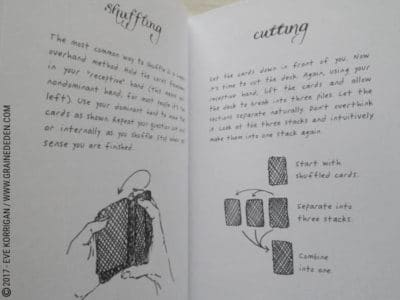 shuffling
The most common way to shuffle is a
overhand method. Hold the cards
in your "receptive" hand (this means your
nondominant hand; for most people it's the
left). Use your dominant hand to move the
cards as shown. Repeat your question out loud
or internally as you shuffle. Stop when you
sense you are finished.
cutting
Set the cards down in front of you. Now
it's time to cut the deck. Again, using your
receptive hand, lift the cards and allow
the deck to break into three piles. Let the
sections separate naturally. Don't overthink
it. Look at the three stacks and intuitively
make them into one stack again.
Start with
shuffled cards.
Separate into
three stacks.
Combine
into one.
© 2017 - EVE KORRIGAN / WWW.GRAINEDEDEN.COM